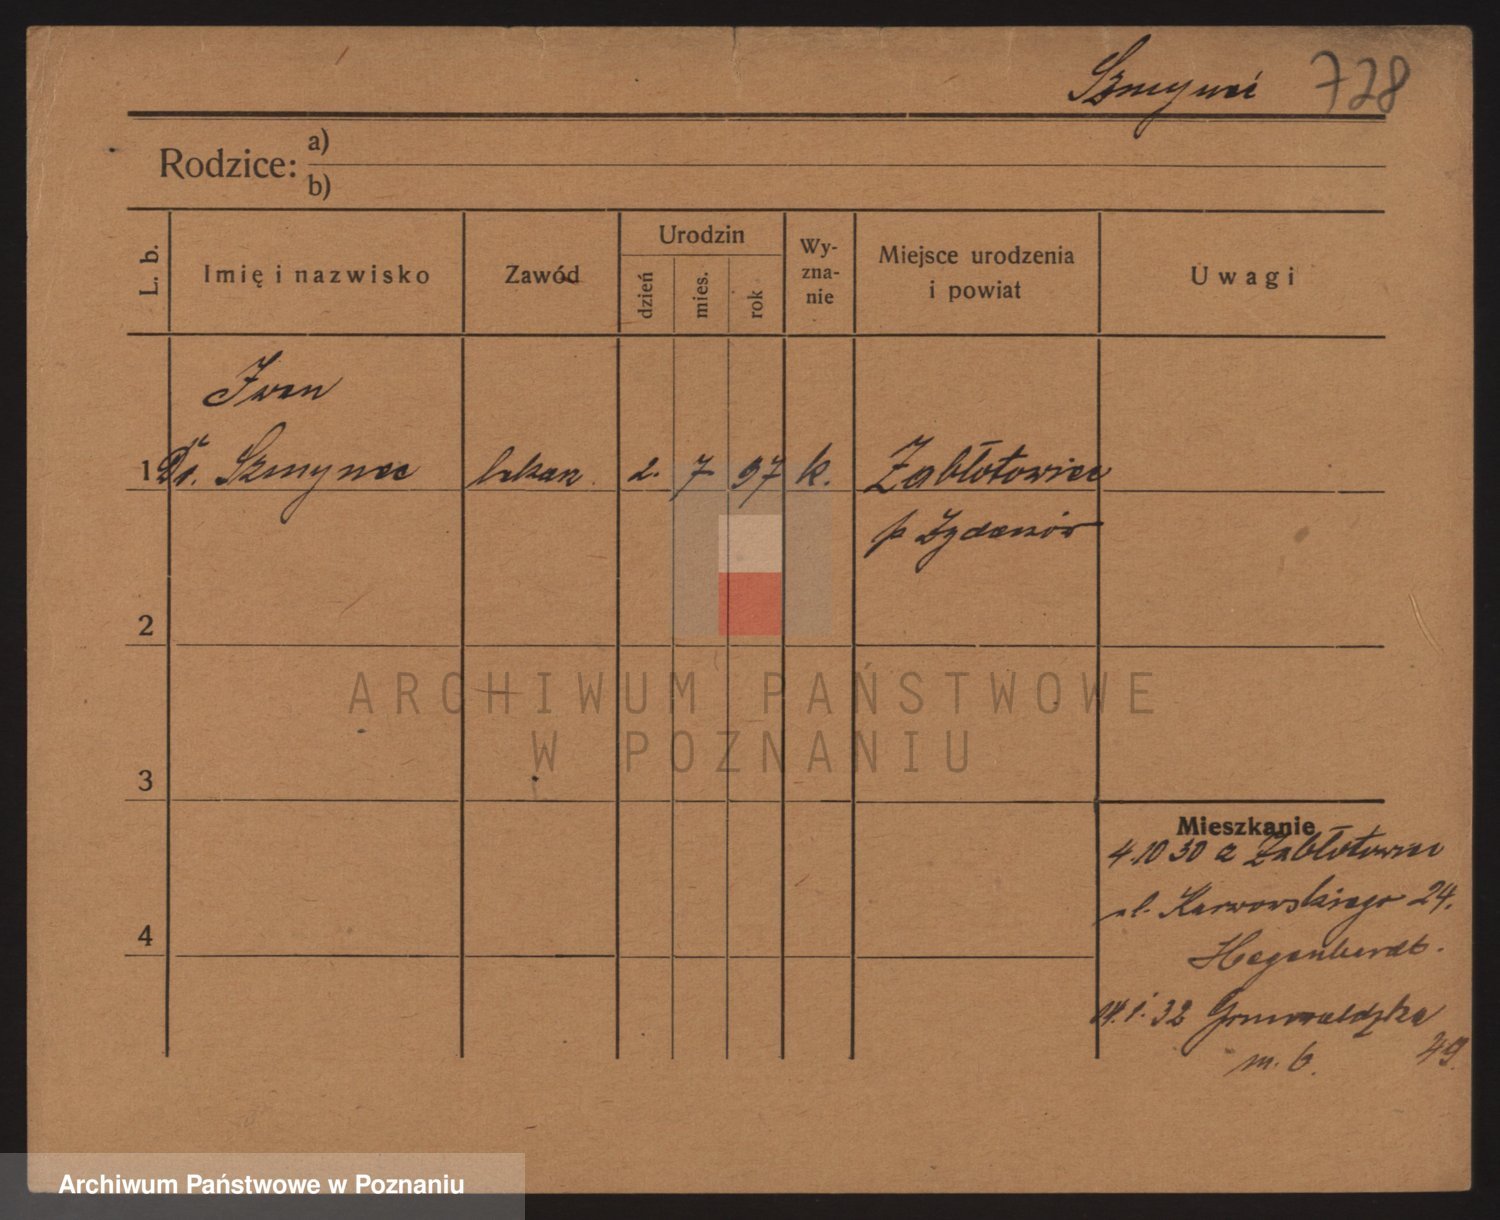 Szmynec 728
Rodzice: a)
b)
L. b.
Imię i nazwisko
Zawód
Urodzin
dzień
mies.
rok
Wy-
zna-
nie
Miejsce urodzenia
i powiat
Uwagi
Iwan
1 Dr. Szmynec lekarz. 2. 7 97 k. Zabłotowice
p Żydaczów
2
ARCHIWUM PAŃSTWOWE
W POZNANIU
3
Mieszkanie
4.10 30 z Zabłotowiec
ul. Karwowskiego 24.
4
14.1.32 Grunwaldzka
m. 6. 49.
Archiwum Państwowe w Poznaniu